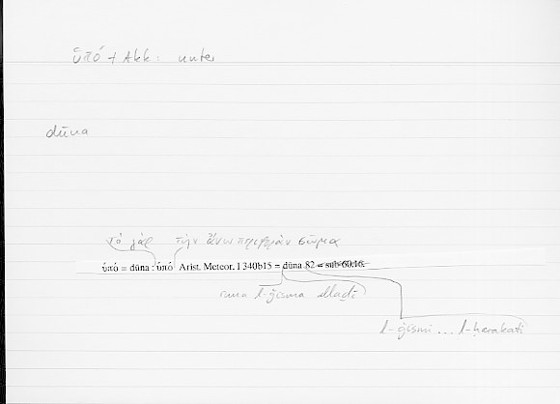 ὑπό + Akk : unter
dūna
τὸ γὰρ τὴν ἄνω περιφορὰν σῶμα
ὑπό = dūna : ὑπό Arist. Meteor. I 340b15 = dūna 82 = sub 60.16.
l-ǧisma llaḏī
l-ǧismi ... l-ḥarakati